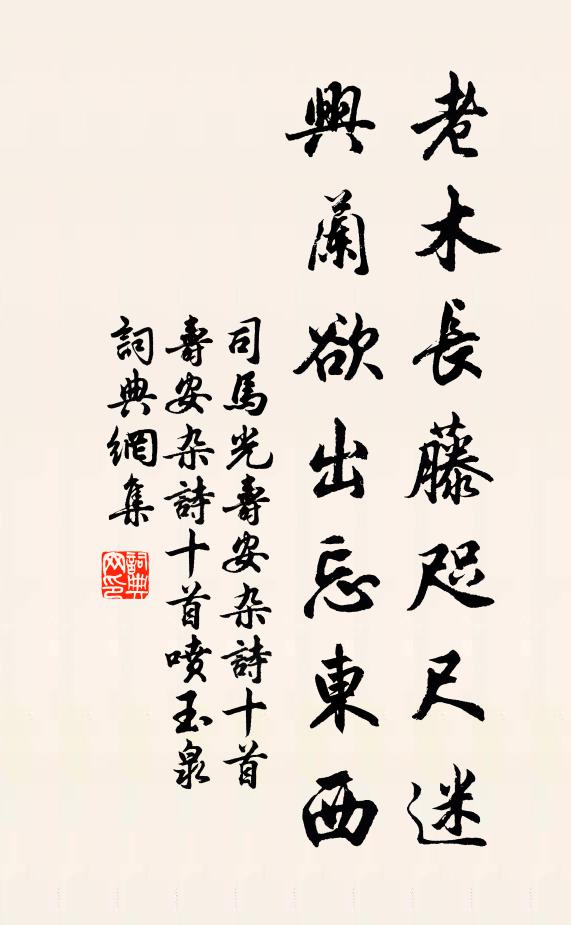 老木長藤咫尺迷
興闌欲出忘東西
司馬光壽安杂詩十首
壽安杂詩十首噴玉泉
詞典網集
詞典网印